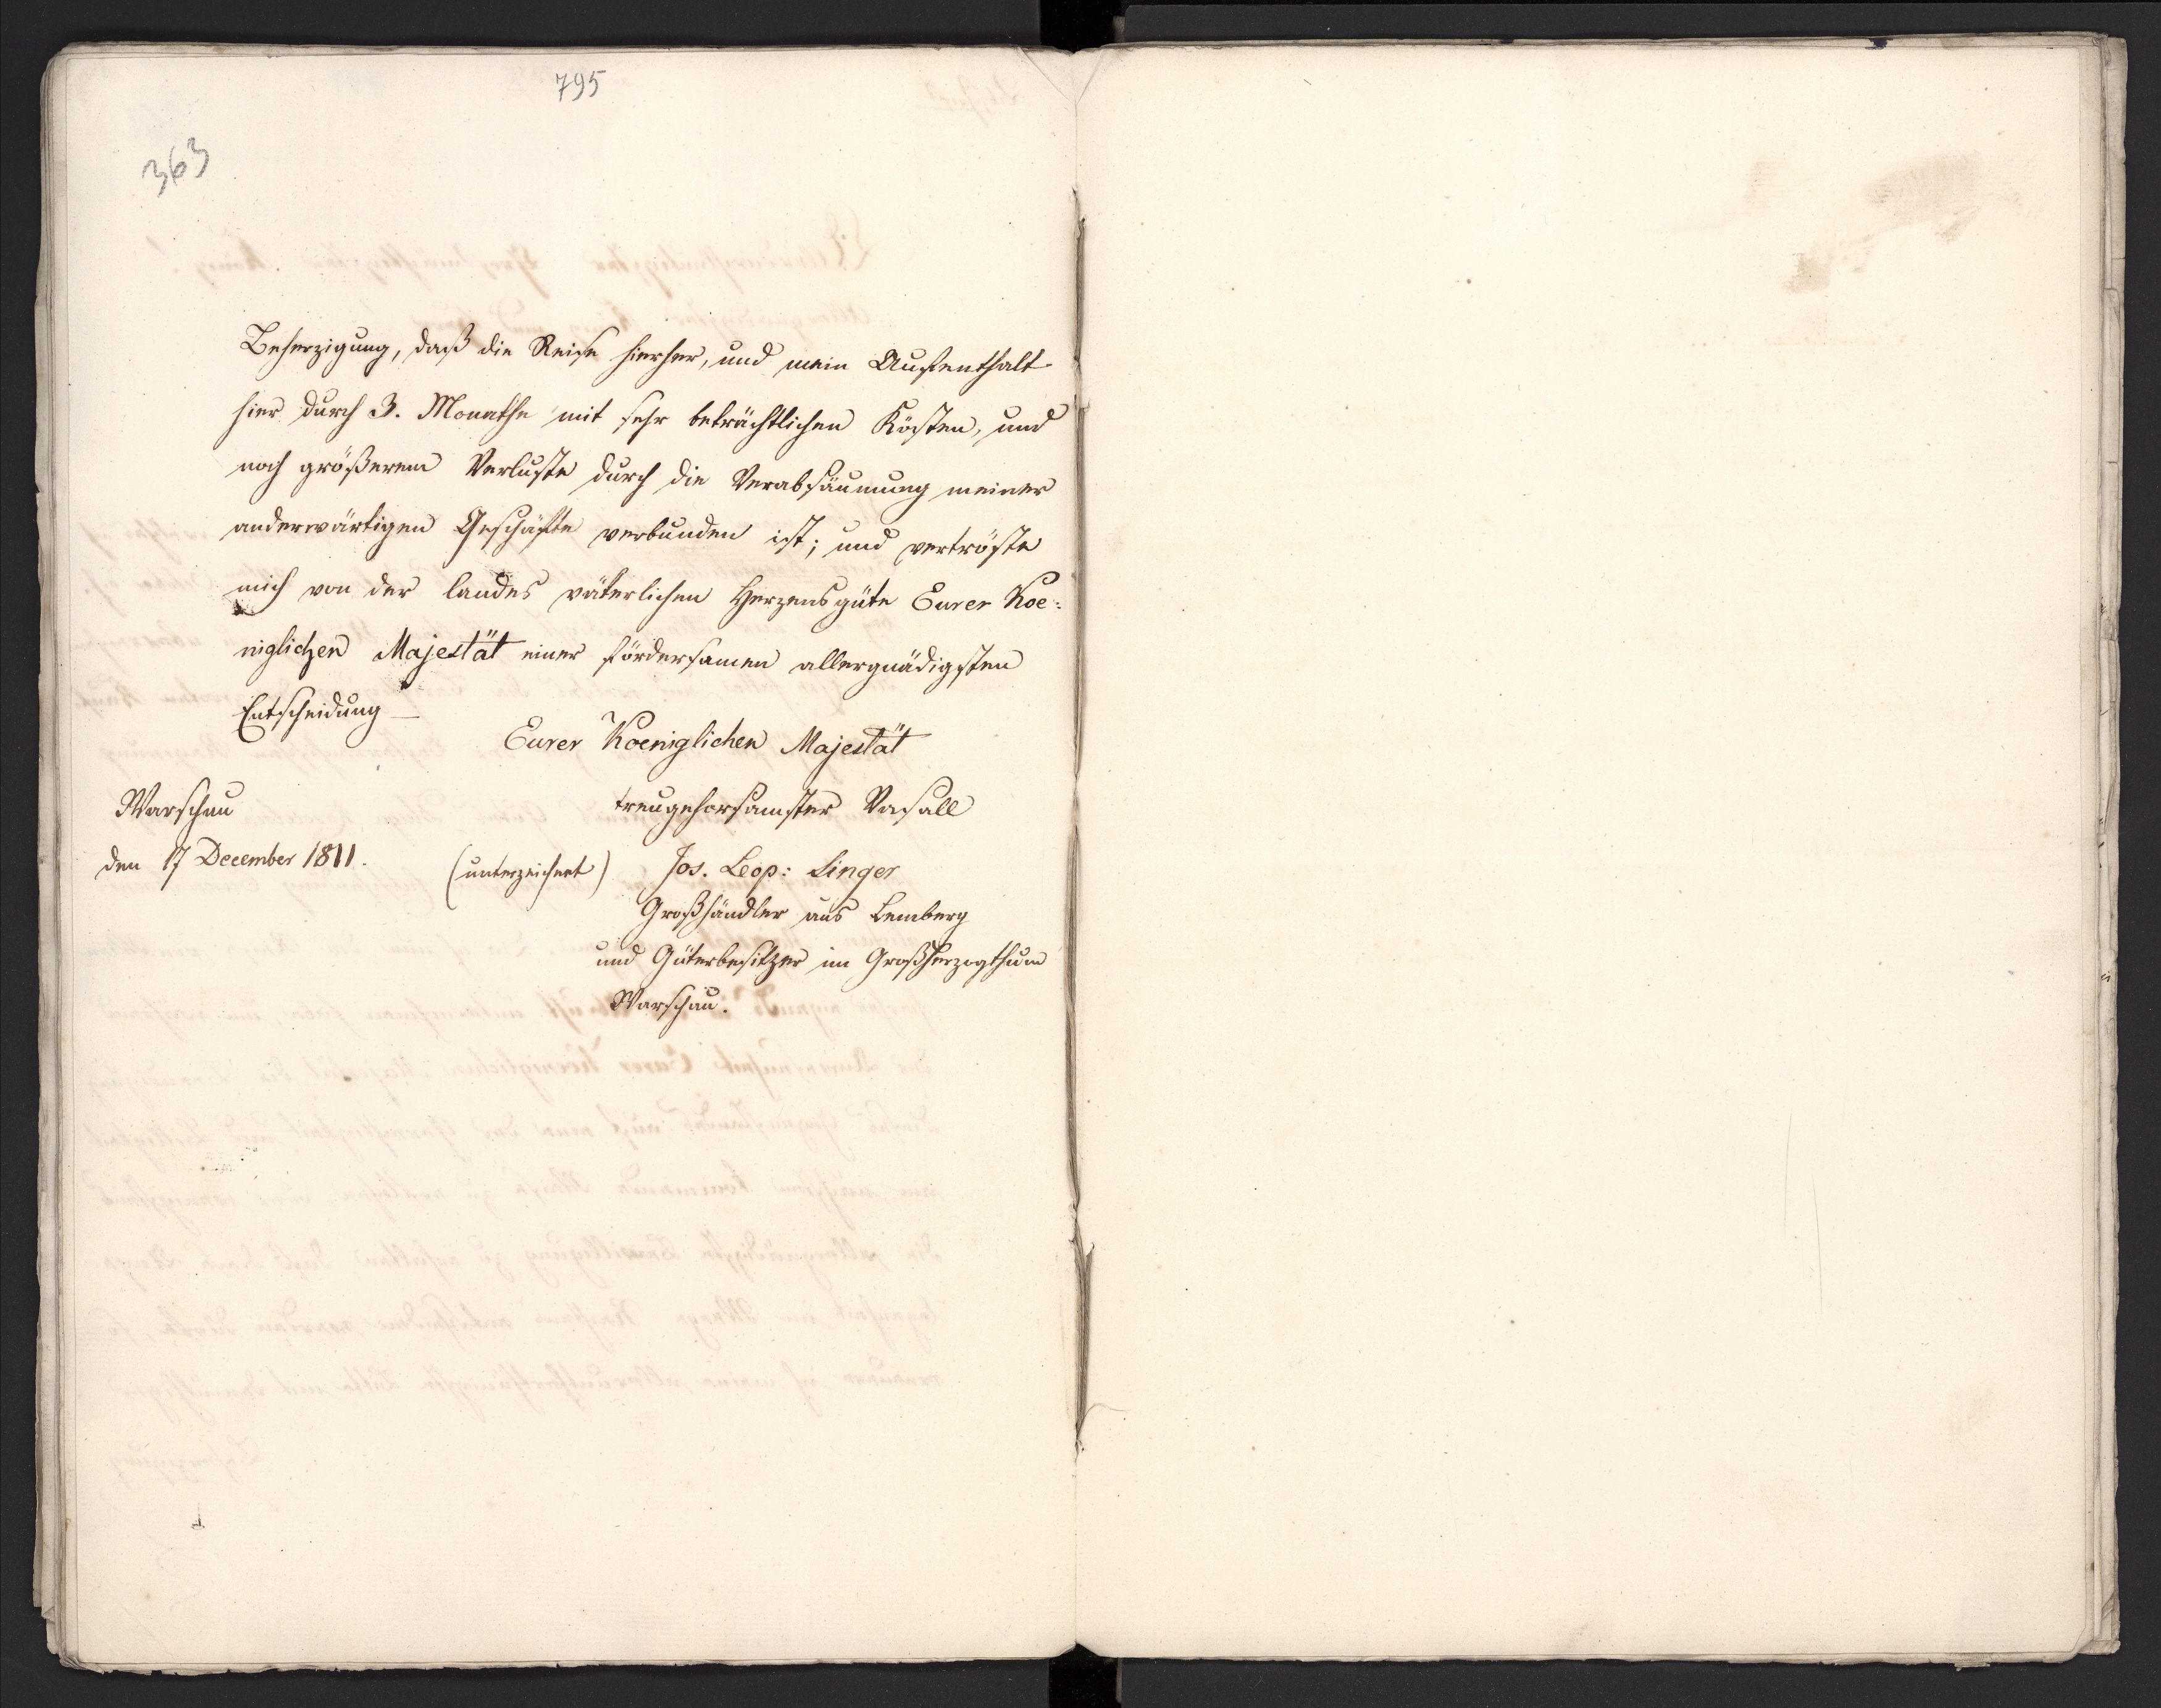 795
363
Beherzigung, daß die Reise hierher, und mein Aufenthalt
hier durch 3. Monathe mit sehr beträchtlichen Kösten, und
noch größerem Verluste durch die Verabsäumung meiner
anderwärtigen Geschäfte verbunden ist; und vertröste
mich von der landes väterlichen Herzensgüte Eurer Koe:
niglichen Majestät einer fördersamen allergnädigsten
Entscheidung —
Eurer Koeniglichen Majestät
treugehorsamster Vasall
Warschau
den 17 December 1811.
(unterzeichnet) Jos. Leop: Singer
Großhändler aus Lemberg
und Güterbesitzer im Großherzogthum
Warschau.